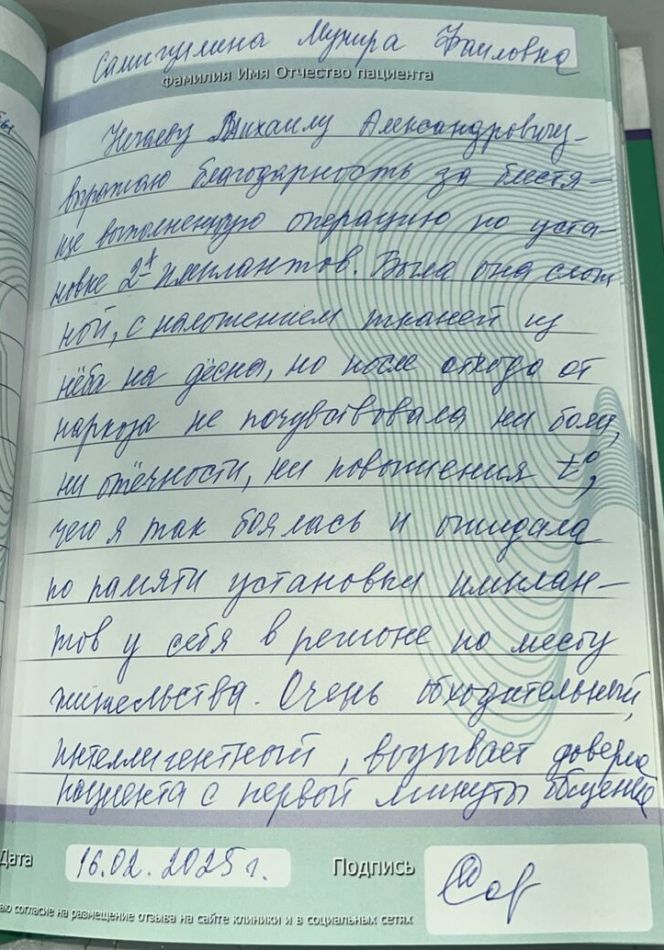 Самигулина Мунира Фаиловна
Фамилия Имя Отчество пациента
Нечаеву Михаилу Александровичу-
выражаю благодарность за блестя-
ще выполненную операцию по уста-
новке 2-х имплантов. Была она слож
ной, с наложением тканей из
нёба на дёсна, но после отхода от
наркоза не почувствовала ни боли,
ни отёчности, ни повышения t°,
чего я так боялась и ожидала
по памяти установки имплан-
тов у себя в регионе по месту
жительства. Очень обходительный,
интеллигентный, вызывает доверие
пациента с первой минуты общения
Дата 16.02.2025 г. Подпись
аю согласие на размещение отзыва на сайте клиники и в социальных сетях